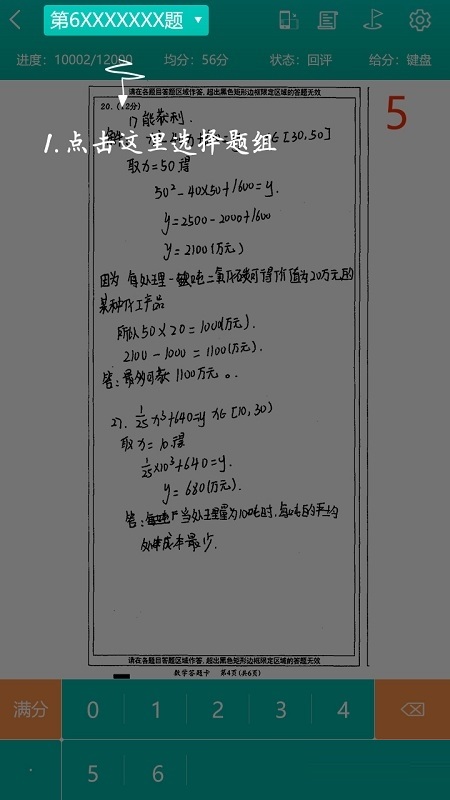 第6XXXXXXX题
进度：10002/12000 均分：56分 状态：回评 给分：键盘
请在各题目答题区域作答，超出黑色矩形边框限定区域的答题无效
5
20.（12分）
1) 能获利.
1.点击这里选择题组
[30,50]
取x=50得
50²-40×50+1600=y.
y=2500-2000+1600
y=2100(万元)
因为 每处理一吨二氧化碳可得价值为20万元的
某种化工产品
所以 50×20=1000(万元).
2100-1000=1100(万元).
答：最多可获1100万元。
27. 1/25 x³+640=y x∈[10,30)
取x=10.得
1/25×10³+640=y.
y=680(万元).
答：当处理量为100吨时,每吨的平均
处理成本最少.
请在各题目答题区域作答，超出黑色矩形边框限定区域的答题无效
数学答题卡 第4页(共6页)
满分 0 1 2 3 4
· 5 6